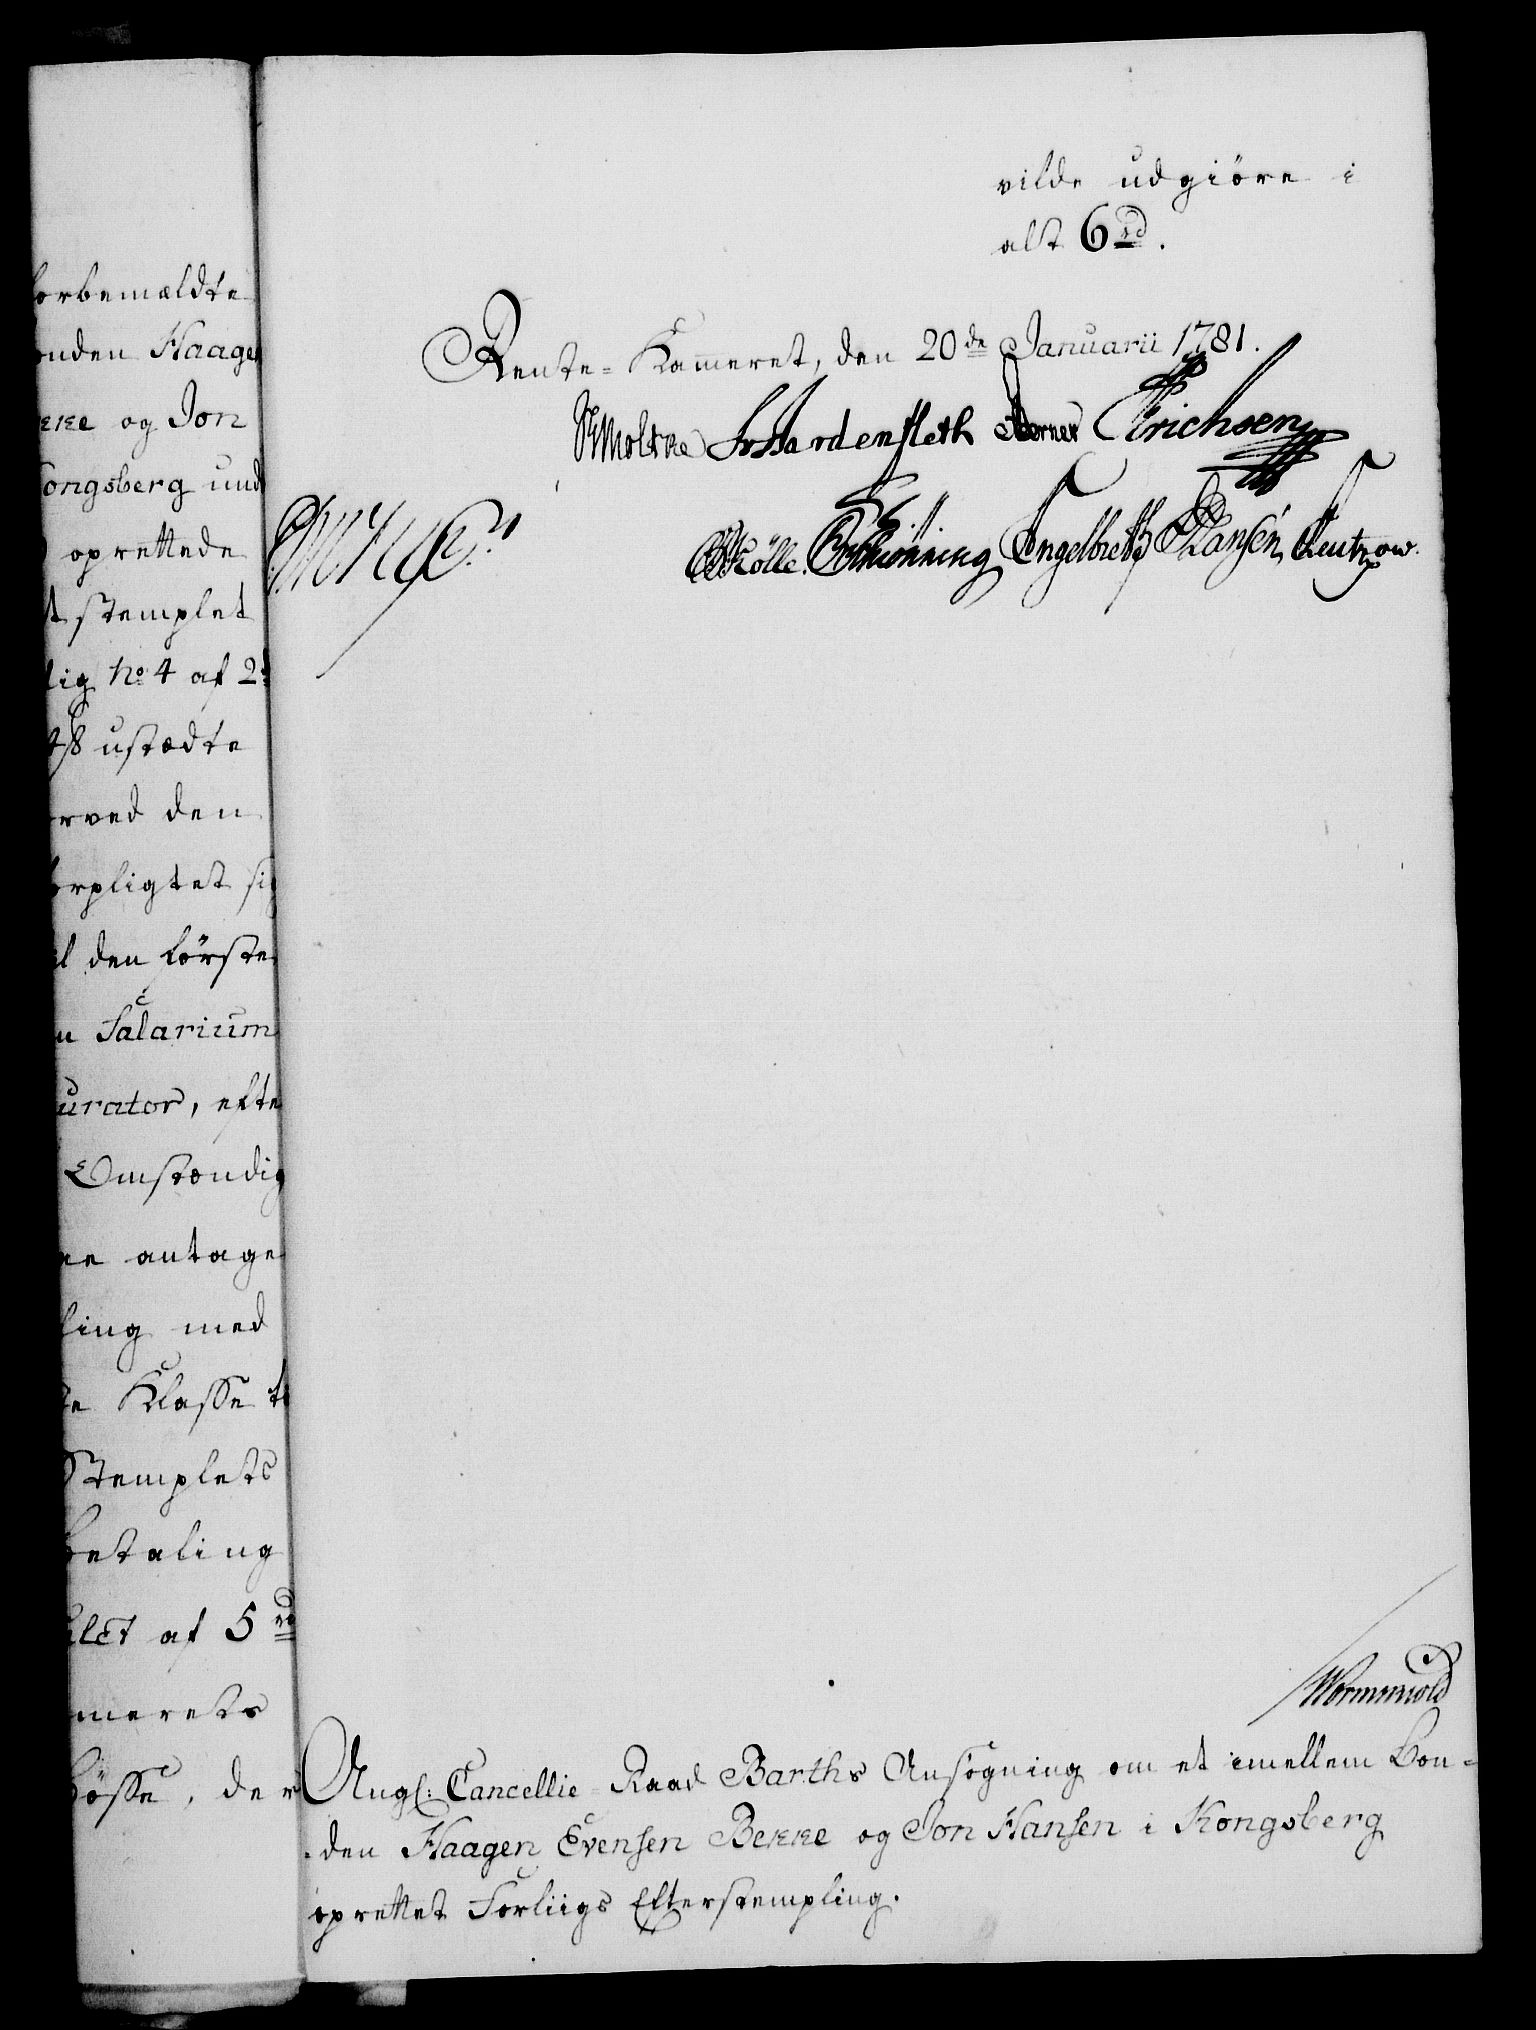 forbemældte
onden Haagen
ekke og Jon
Kongsberg und
oprettede
t stemplet
lig No 4 af 2
4 ß ustædte
rved den
forpligtet sig
l den første
n Salarium
urator, efte
Omstændig
ne antage
ling med
te Klasse ti
Stemplets
betaling
let af 5 rd
merets
bösse, der
vilde udgiöre i
alt 6 rd.
Rente-Kammeret, den 20de Januarii 1781.
Moltke Hardenfleth Berner Erichsen
Kölle. Schiönning Engelbreth Hansen, Leutzow.
Wormwold
Angl: Cancellie-Raad Barths Ansögning om et imellem Bon-
den Haagen Evensen Bekke og Jon Hansen i Kongsberg
oprettet Forliigs Efterstempling.